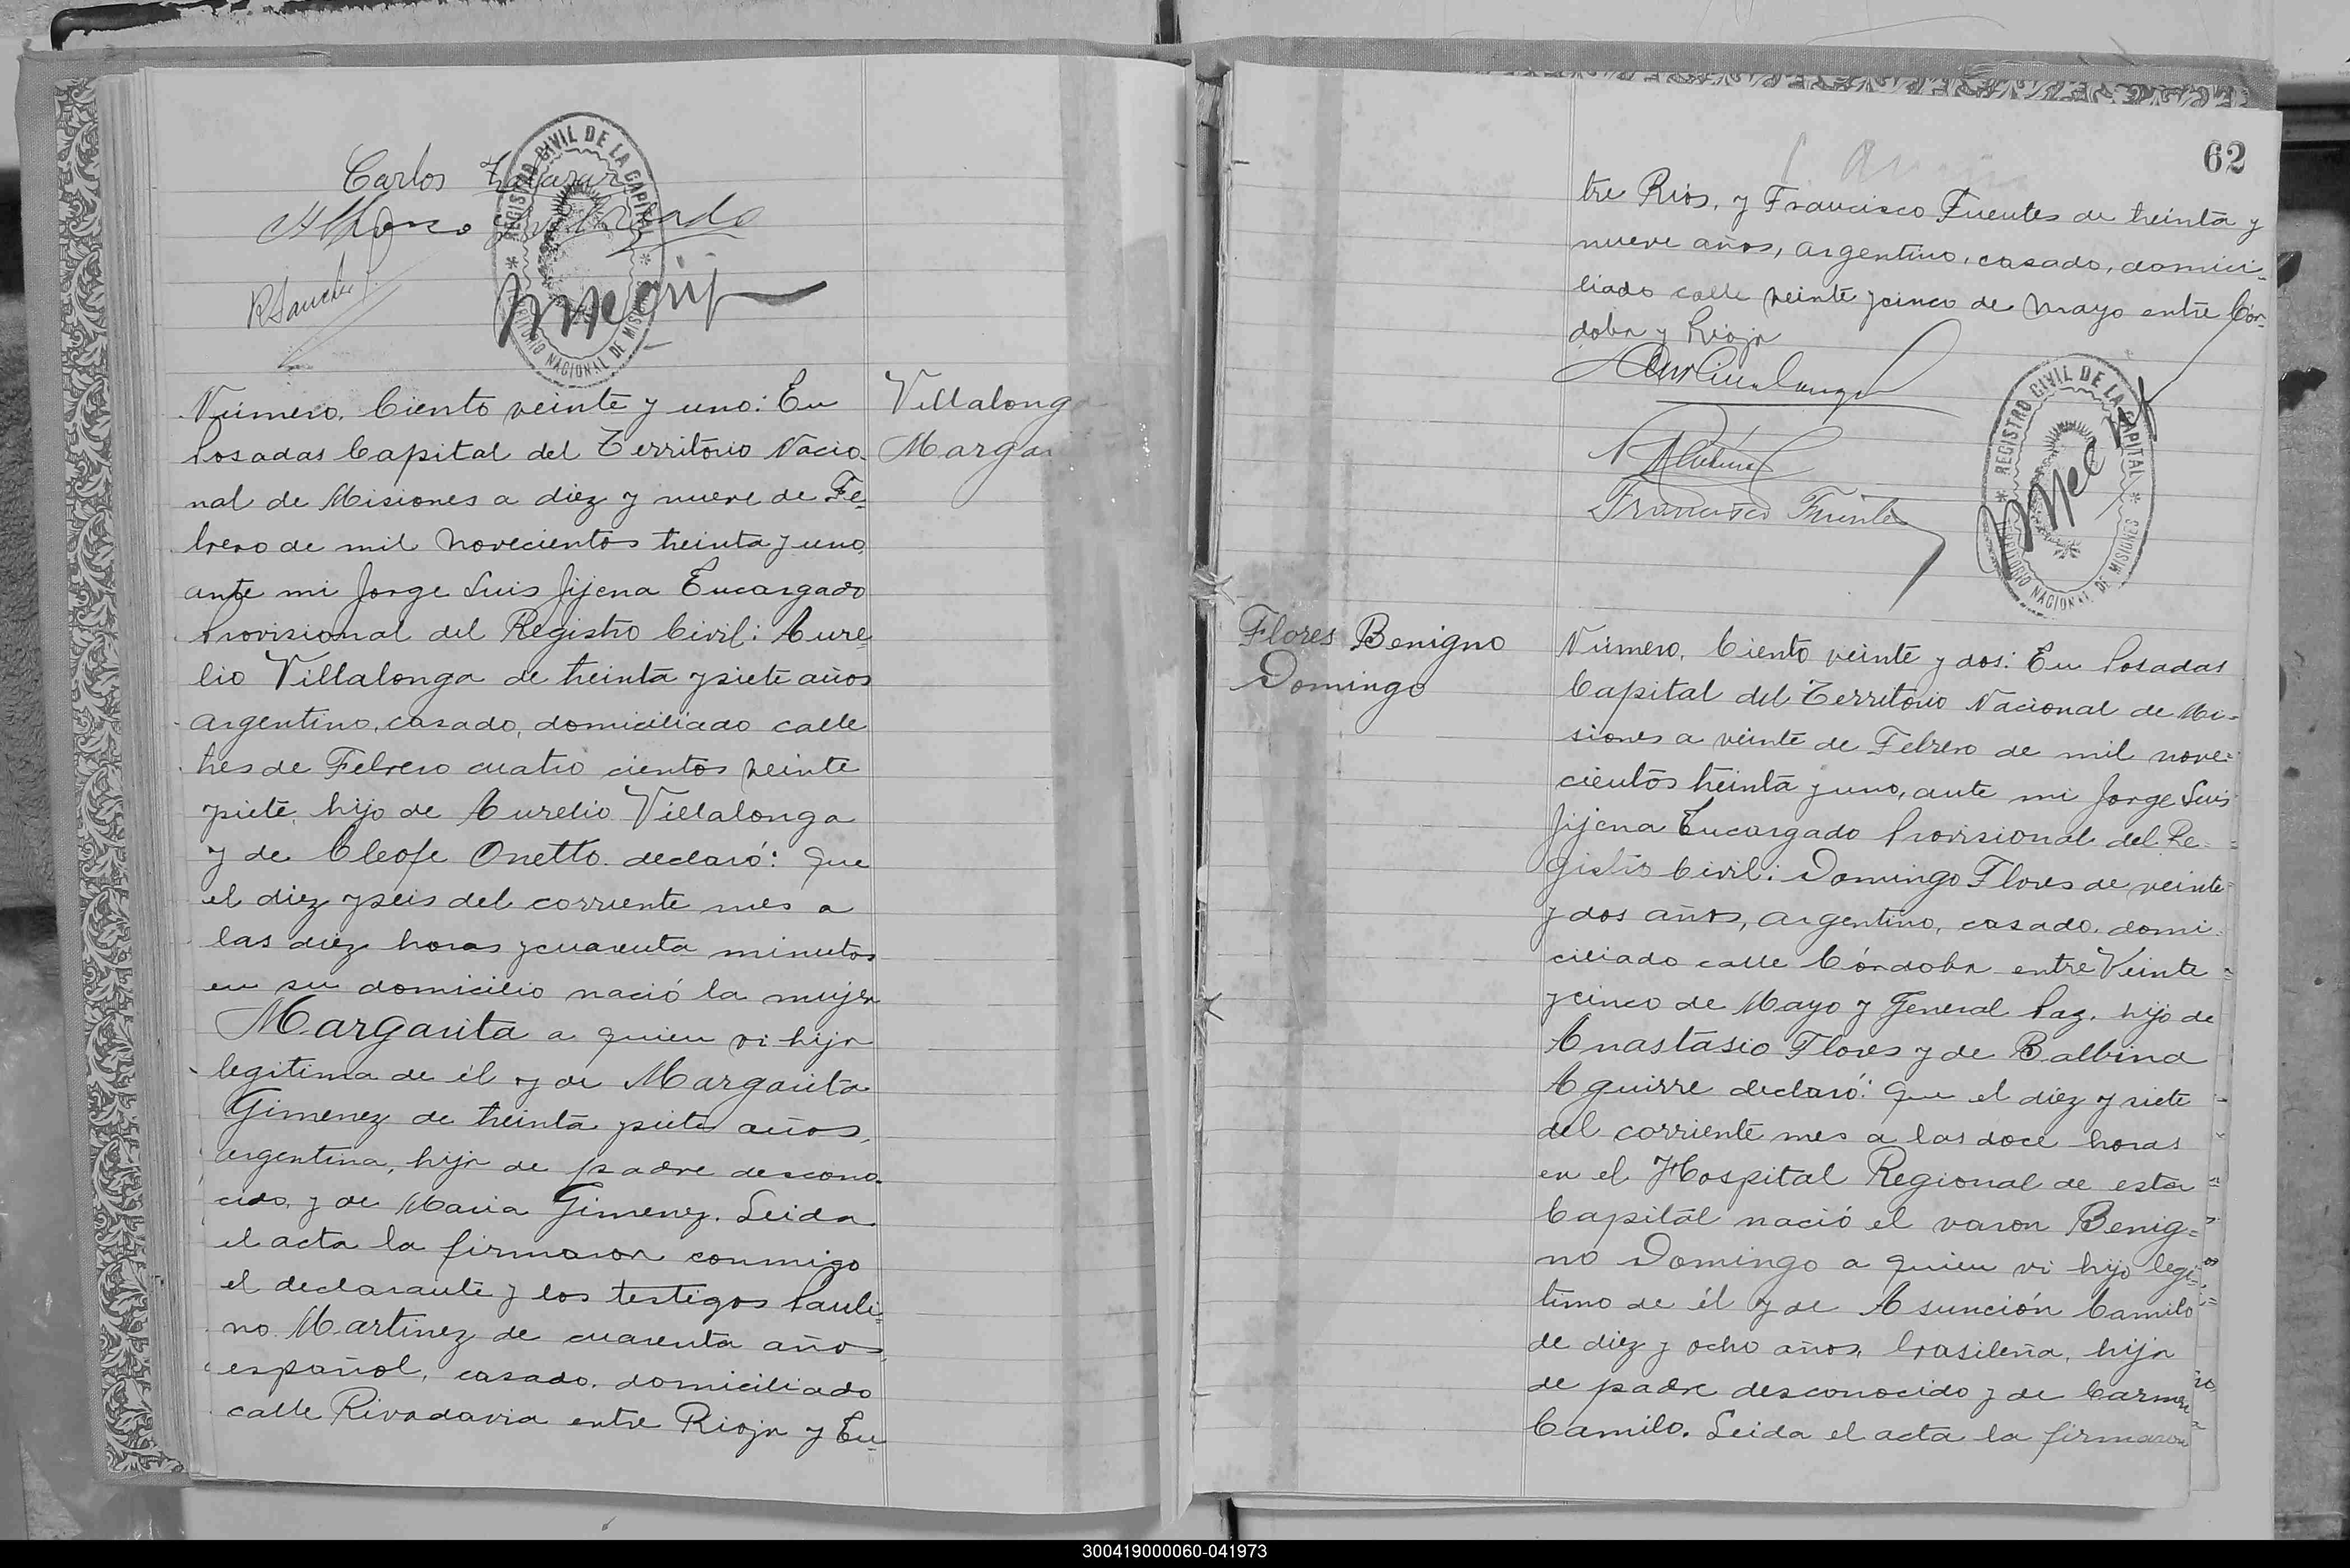 Carlos
Alfonso
RSanchez
REGISTRO CIVIL DE LA CAPITAL
TERRITORIO NACIONAL DE MISIONES
Número. Ciento veinte y uno: En
Posadas Capital del Territorio Nacio-
nal de Misiones a diez y nueve de Fe-
brero de mil novecientos treinta y uno,
ante mi Jorge Luis Jijena Encargado
Provisional del Registro Civil: Aure-
lio Villalonga de treinta y siete años
argentino, casado, domiciliado calle
tres de Febrero cuatro cientos veinte
y siete, hijo de Aurelio Villalonga
y de Cleofe Onetto. declaró: Que
el diez y seis del corriente mes a
las diez horas y cuarenta minutos
en su domicilio nació la mujer
Margarita a quien vi hija
legitima de él y de Margarita
Gimenez de treinta y siete años,
argentina, hija de padre descono-
cido, y de Maria Gimenez. Leida
el acta la firmaron conmigo
el declarante y los testigos Pauli-
no Martinez de cuarenta años,
español, casado, domiciliado
calle Rivadavia entre Rioja y En-
Villalonga
Margar
62
tre Rios, y Francisco Fuentes de treinta y
nueve años, argentino, casado, domici-
liado calle veinte y cinco de Mayo entre Cór-
doba y Rioja
Francisco Fuentes
REGISTRO CIVIL DE LA CAPITAL
TERRITORIO NACIONAL DE MISIONES
Flores Benigno
Domingo
Número. Ciento veinte y dos: En Posadas
Capital del Territorio Nacional de Mi-
siones a veinte de Febrero de mil nove-
cientos treinta y uno, ante mi Jorge Luis
Jijena Encargado Provisional del Re-
gistro Civil: Domingo Flores de veinte
y dos años, argentino, casado, domi-
ciliado calle Córdoba entre Veinte
y cinco de Mayo y General Paz, hijo de
Anastasio Flores y de Balbina
Aguirre declaró: Que el diez y siete
del corriente mes a las doce horas
en el Hospital Regional de esta
Capital nació el varon Benig-
no Domingo a quien vi hijo legi-
timo de él y de Asunción Camilo
de diez y ocho años, brasileña, hija
de padre desconocido y de Carmen
Camilo. Leida el acta la firmaron
300419000060-041973